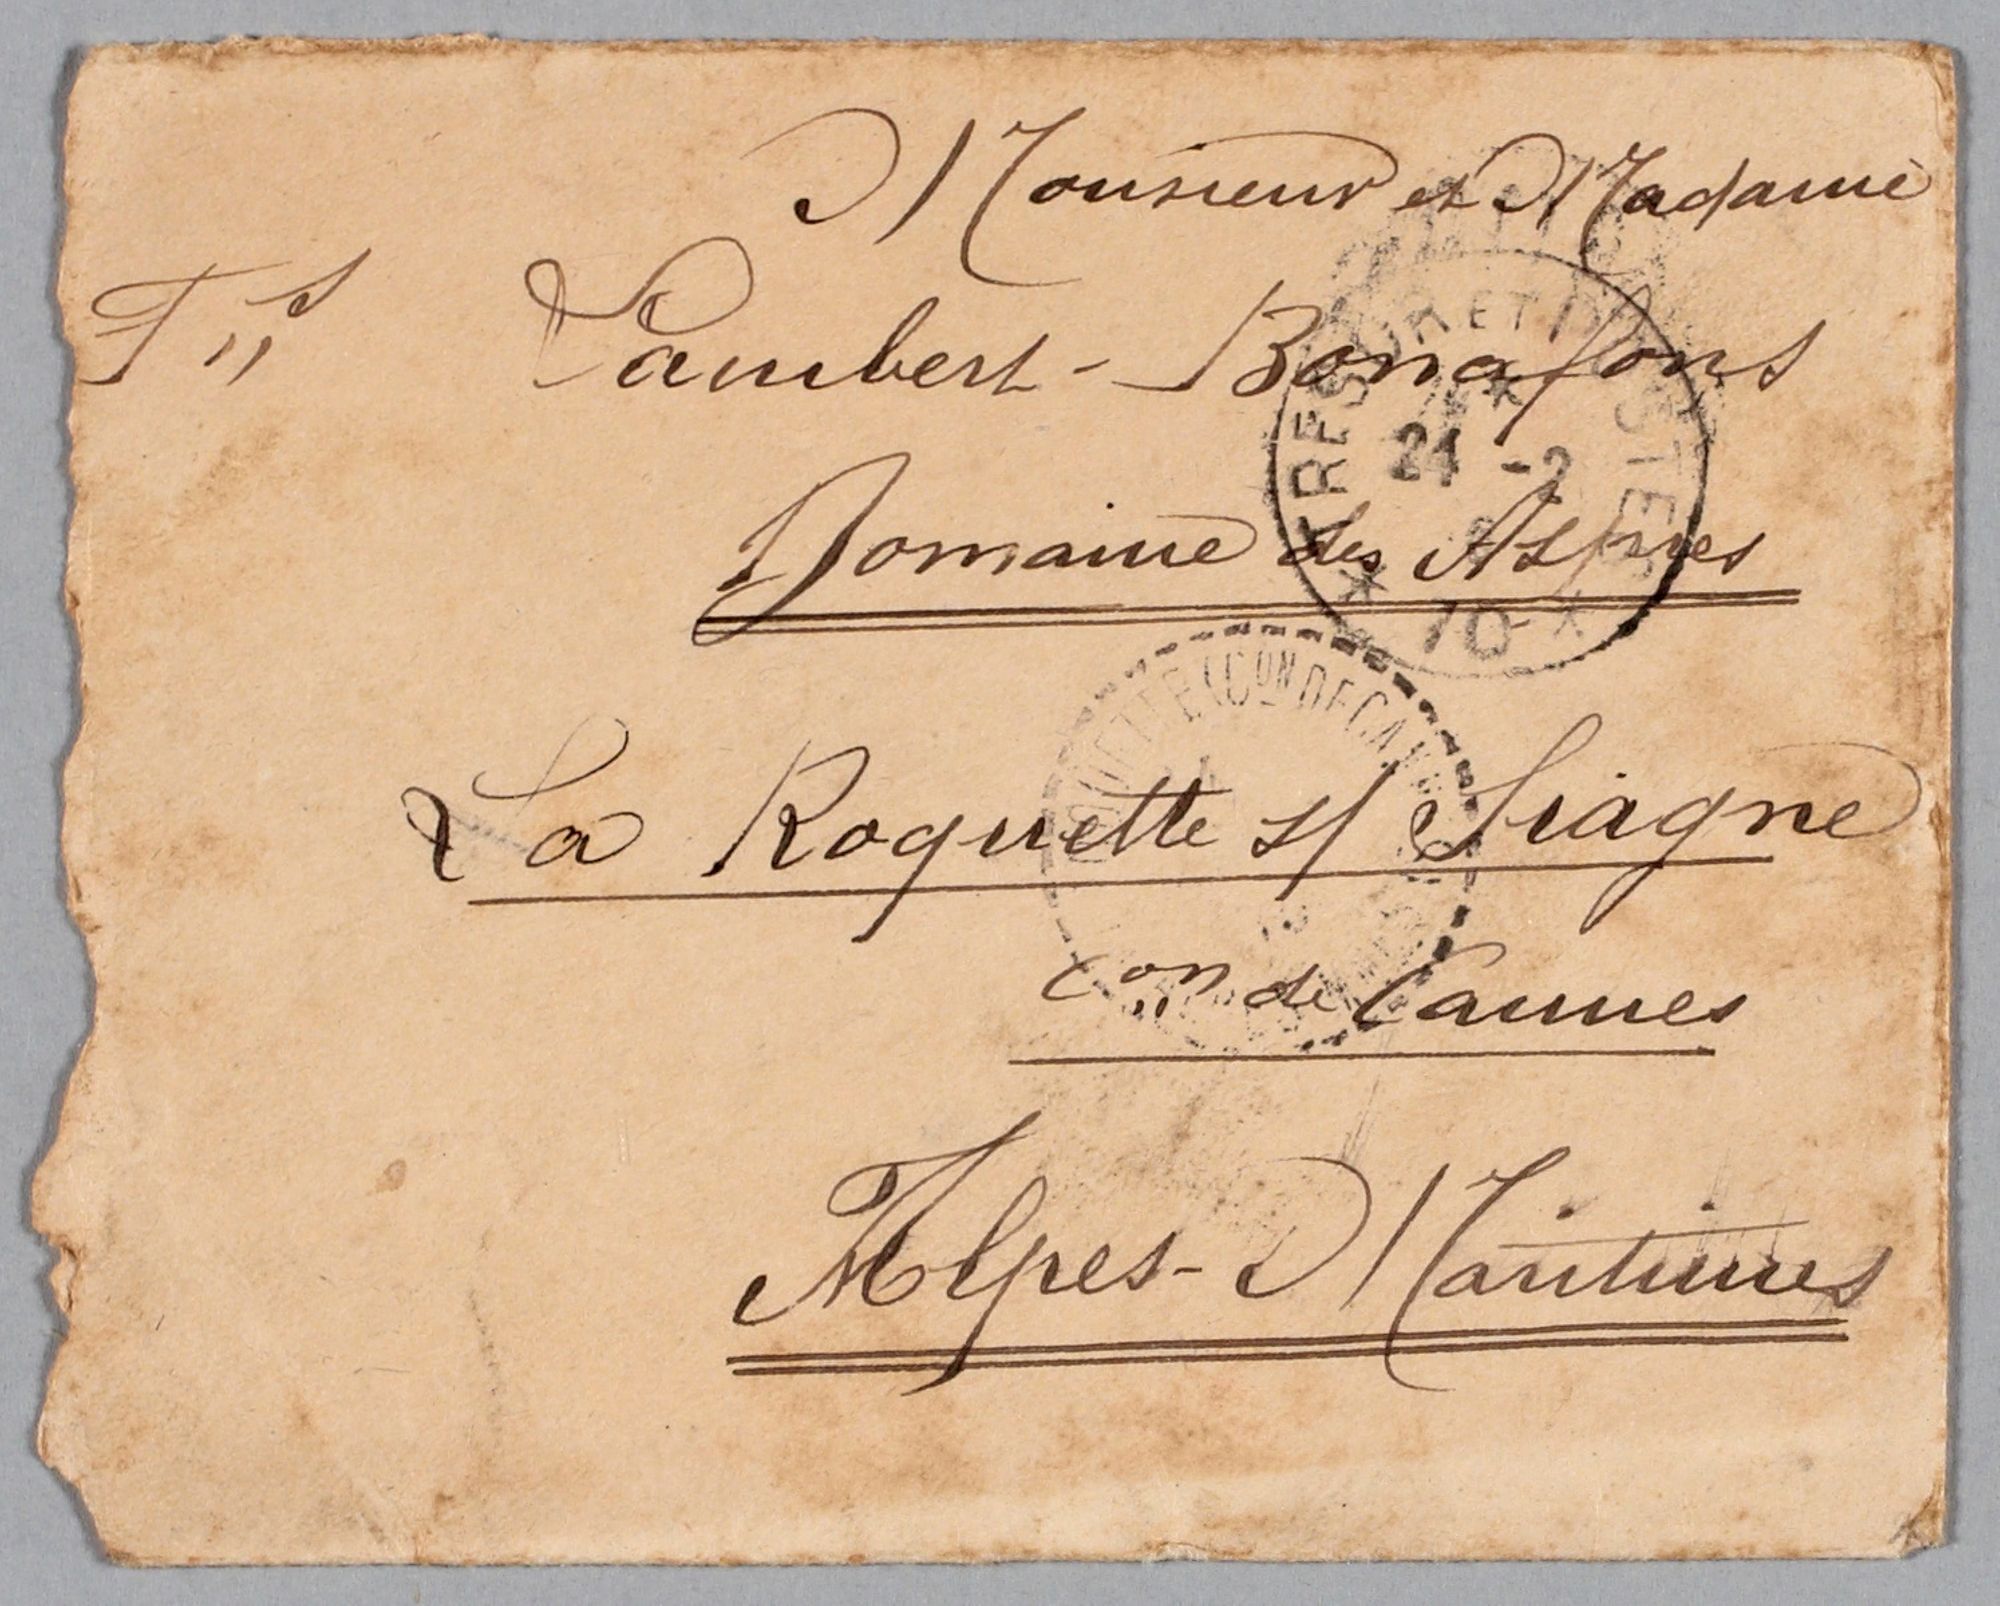 Monsieur et Madame
F s Lambert-Bonafons
Domaine des Aspres
La Roquette s/ Siagne
Con de Cannes
Alpes-Maritimes
TRESOR ET POSTES
21 -2
* 10 *
ROQUETTE (CON DE CANNES)